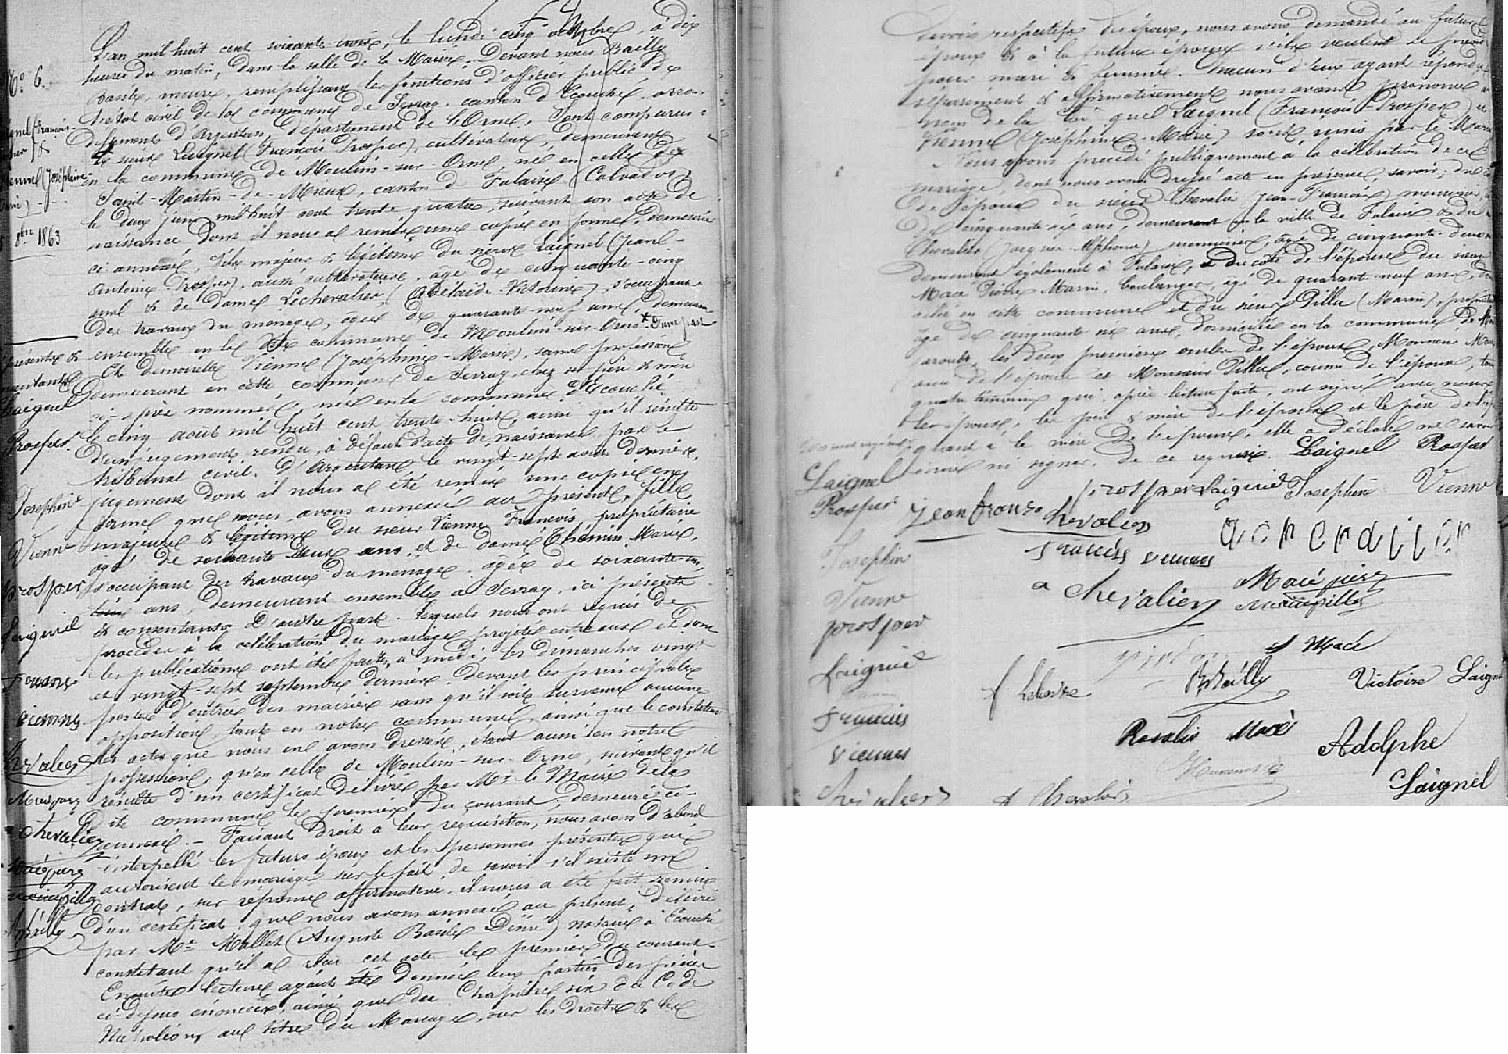 L'an mil huit cent soixante trois, le lundi cinq octobre, à dix
heures du matin, dans la salle de la Mairie. Devant nous Bailly
Basile, maire, remplissant les fonctions d'officier public de
l'état civil de la commune de Serray, canton d'Ecouché, arron-
dissement d'Argentan, département de l'Orne, sont comparus:
le sieur Laignel (François Prosper), cultivateur, demeurant
en la commune de Moulin-sur-Orne né en celle de
Saint-Martin-de-Mieux, canton de Falaise (Calvados)
le deux juin mil huit cent trente quatre, suivant son acte de
naissance dont il nous a remis une copie en forme, demeurée
ci-annexée, fils majeur & légitime du sieur Laignel (Jean-
Antoine Prosper), aussi cultivateur, âgé de cinquante-cinq
ans & de dame Lechevalier (Adélaïde Victoire), s'occupant
des travaux du ménage, âgée de quarante neuf ans, demeurant
ensemble en la dite commune de Moulin-sur-Orne * D'une part
Et demoiselle Vienne (Joséphine-Marie), sans profession,
demeurant en cette commune de Serray chez ses père & mère
ci-après nommés, née en la commune d'Ecouché
le cinq août mil huit cent trente-huit, ainsi qu'il résulte
d'un jugement rendu, à défaut d'acte de naissance par le
tribunal civil d'Argentan le vingt-sept août dernier,
jugement dont il nous a été remis une copie en
forme que nous avons annexée au présent, fille
majeure & légitime du sieur Vienne François, propriétaire
âgé de soixante deux ans, et de dame Chemin Marie,
s'occupant des travaux du ménage, âgée de soixante-un
ans demeurant ensemble à Serray, ici présents
& consentants D'autre part. Lesquels nous ont requis de
procéder à la célébration du mariage projeté entre eux et dont
les publications ont été faites, à midi, les dimanches vingt
et vingt-sept septembre dernier devant les principales
portes d'entrée des mairies sans qu'il soit survenu aucune
opposition, tant en notre commune, ainsi que le constatent
les actes que nous en avons dressés, étant aussi en notre
possession, qu'en celle de Moulin-sur-Orne, suivant qu'il
résulte d'un certificat délivré par Mr le Maire de la
dite commune le premier du courant, demeuré ci
annexé. - Faisant droit à leur réquisition, nous avons d'abord
interpellé les futurs époux et les personnes présentes qui
autorisent le mariage sur le fait de savoir s'il existe un
contrat, sur réponse affirmative, il nous a été fait remise
d'un certificat, que nous avons annexé au présent, délivré
par Me Mallet (Auguste Basile Désiré) notaire à Ecouché
constatant qu'il a reçu cet acte le premier du courant.
Ensuite lecture ayant été donnée aux parties des pièces
ci-dessus énoncées, ainsi que du Chapitre six du Code
Napoléon, au titre du Mariage, sur les droits & les
No 6.
Vienne (Joséphine
8bre 1863
présents &
consentants
Laignel
Prosper
Joséphine
Vienne
prosper
Laignel
francois
vienne
chevalier
chevalier
Macé pierre
Bailly
devoirs respectifs des époux, nous avons demandé au futur
époux & à la future épouse s'ils veulent se prendre
pour mari & femme. Chacun d'eux ayant répondu
séparément & affirmativement nous avons prononcé au
nom de la loi que Laignel (François Prosper) et
Vienne (Joséphine-Marie) sont unis par le Mariage
Nous avons procédé publiquement à la célébration de ce
mariage, dont nous avons dressé acte en présence, savoir, du côté
de l'époux du sieur Chevalier Jean-François, menuisier, âgé
de cinquante-six ans, demeurant en la ville de Falaise & du sieur
Chevalier (Jacques Alphonse), menuisier, âgé de cinquante-deux ans
demeurant également à Falaise, & du côté de l'épouse du sieur
Macé Pierre Marin, boulanger, âgé de quarante-neuf ans, domi-
cilié en cette commune et du sieur Pille (Marin), propriétaire
âgé de cinquante six ans, domicilié en la commune de
les deux premiers oncles de l'époux, Monsieur Macé
ami de l'épouse et Monsieur Pille, cousin de l'épouse, tous
quatre témoins qui, après lecture faite, ont signé avec nous
les époux, les père & mère de l'époux et le père de l'épouse
quant à la mère de l'épouse, elle a déclaré ne savoir
écrire ni signer, de ce requise. Laignel Prosper
prosper Laignel Joséphine Vienne
jean francois chevalier
francois viennes
a chevalier Macé pierre
marin pille
A Macé
f Lebaise Bailly Victoire Laignel
Rosalie Macé
Adolphe
Laignel
Laignel
Prosper
Joséphine
Vienne
prosper
Laignel
francois
viennes
chevalier